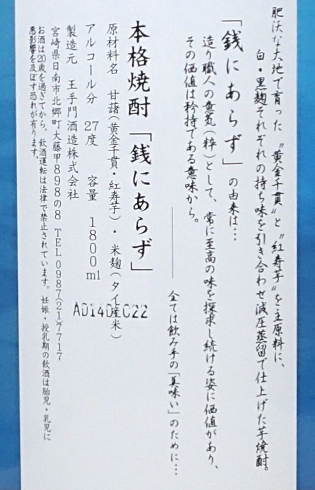 肥沃な大地で育った"黄金千貫"と"紅寿芋"を主原料に、
白・黒麹それぞれの持ち味を引き合わせ減圧蒸留で仕上げた芋焼酎。
「銭にあらず」の由来は…
造り職人の意気(粋)として、常に至高の味を探求し続ける姿に価値があり、
その価値は矜持である意味から。
全ては飲み手の「美味い」のために…
本格焼酎「銭にあらず」
原材料名 甘藷(黄金千貫・紅寿芋)・米麹(タイ産米)
アルコール分 27度 容量 1800ml
製造元 王手門酒造株式会社
宮崎県日南市北郷町大藤甲898の8 TEL0987(21)7717
お酒は20歳を過ぎてから。飲酒運転は法律で禁止されています。妊娠・授乳期の飲酒は胎児・乳児に
悪影響を及ぼす恐れが有ります。